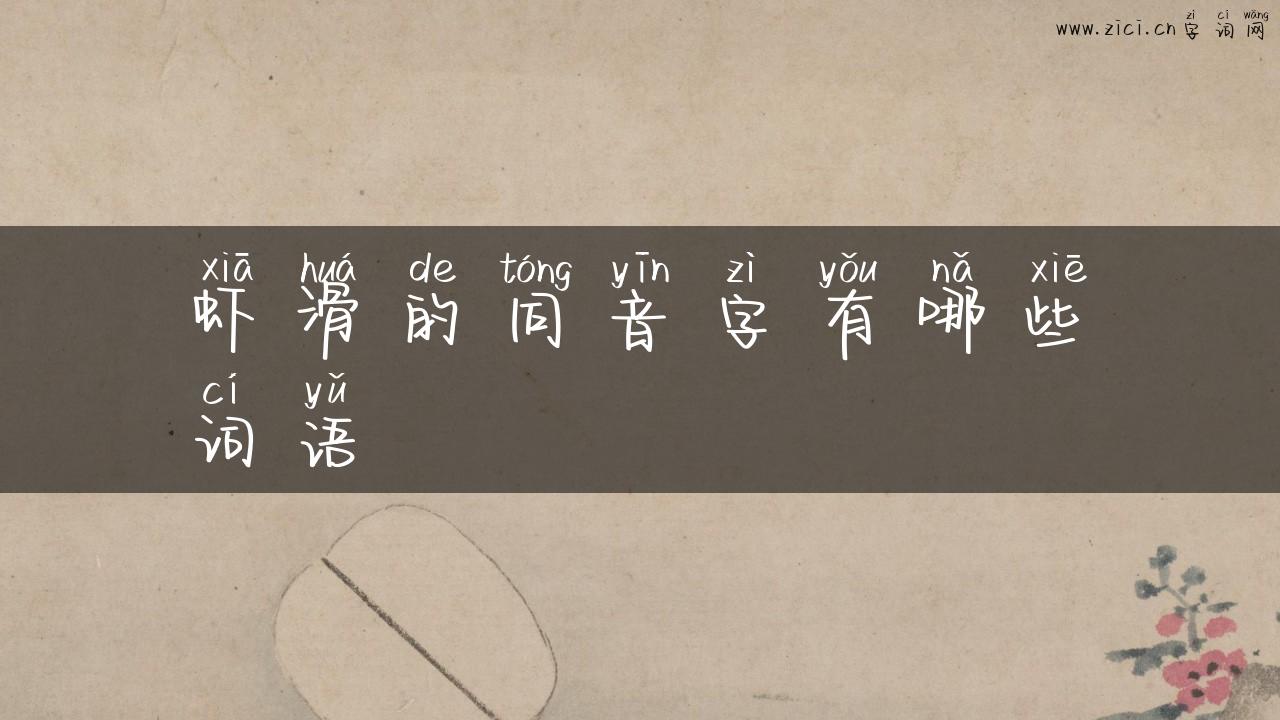 zì cí wǎng
www.zici.cn字词网
xiā huá de tóng yīn zì yǒu nǎ xiē
虾滑的同音字有哪些
cí yǔ
词语